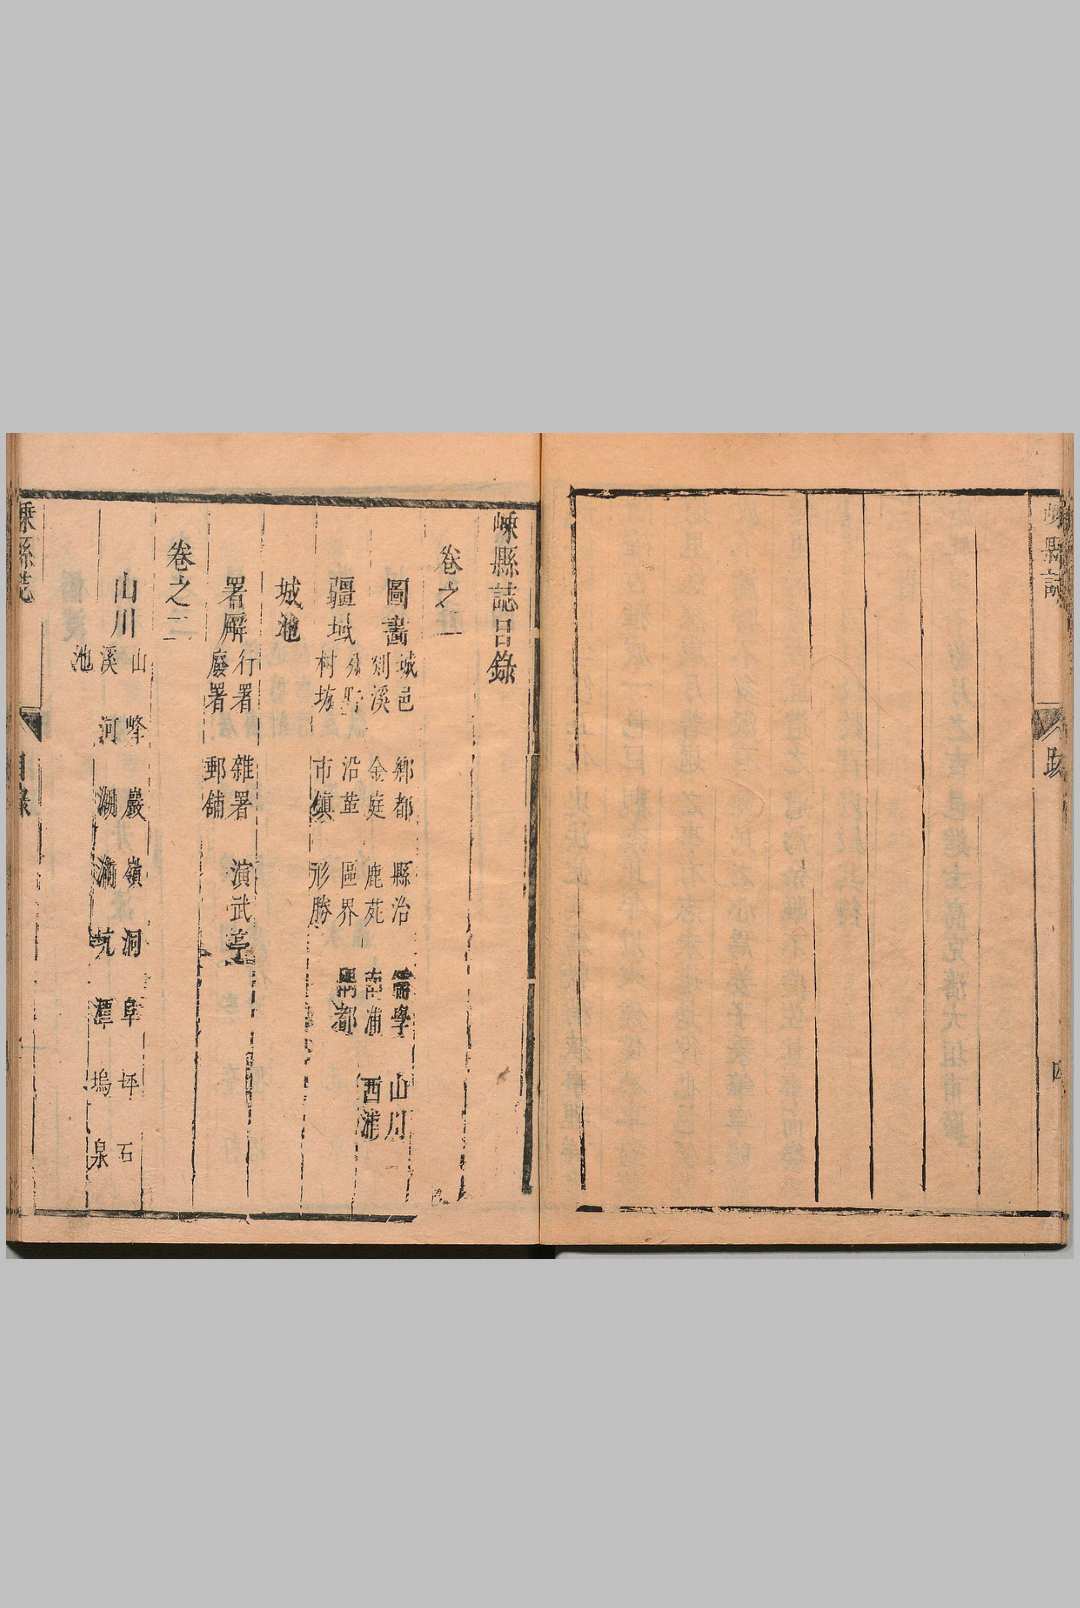 嵊縣誌
跋
四
嵊縣誌目錄
卷之一
圖畵
城邑 鄉都 縣治 儒學 山川
剡溪 金庭 鹿苑 南浦 西浦
疆域
分野 沿革 區界 隅都
村坊 市鎮 形勝
城池
署廨
行署 雜署 演武亭
廢署 郵舖
卷之二
山川
山 峰 巖 嶺 洞 阜 坪 石
溪 河 湖 浦 坑 潭 塢 泉
池
嵊縣誌
目錄
一